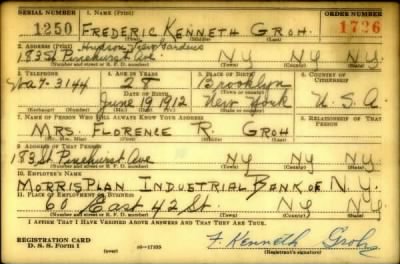 SERIAL NUMBER 1. NAME (Print) ORDER NUMBER
1250 FREDERIC KENNETH GROH. 1726
2. ADDRESS (Print) Hudson View Gardens
183 St Pinehurst Ave NY NY NY
(Number and street or R. F. D. number) (Town) (County) (State)
3. TELEPHONE 4. AGE IN YEARS 5. PLACE OF BIRTH 6. COUNTRY OF CITIZENSHIP
Wa 7-3144 28 Brooklyn
DATE OF BIRTH (Town or county)
June 19 1912 New York U.S.A.
(Exchange) (Number) (Mo.) (Day) (Yr.) (State or country)
7. NAME OF PERSON WHO WILL ALWAYS KNOW YOUR ADDRESS 8. RELATIONSHIP OF THAT PERSON
MRS. FLORENCE R. GROH
9. ADDRESS OF THAT PERSON
183 St Pinehurst Ave NY NY NY
(Number and street or R. F. D. number) (Town) (County) (State)
10. EMPLOYER'S NAME
MORRIS PLAN INDUSTRIAL BANK OF N.Y.
11. PLACE OF EMPLOYMENT OR BUSINESS
60 East 42 St. NY NY
(Number and street or R. F. D. number) (Town) (County) (State)
I AFFIRM THAT I HAVE VERIFIED ABOVE ANSWERS AND THAT THEY ARE TRUE.
REGISTRATION CARD
D. S. S. Form 1 (over) 16-17105 F. Kenneth Groh
(Registrant's signature)